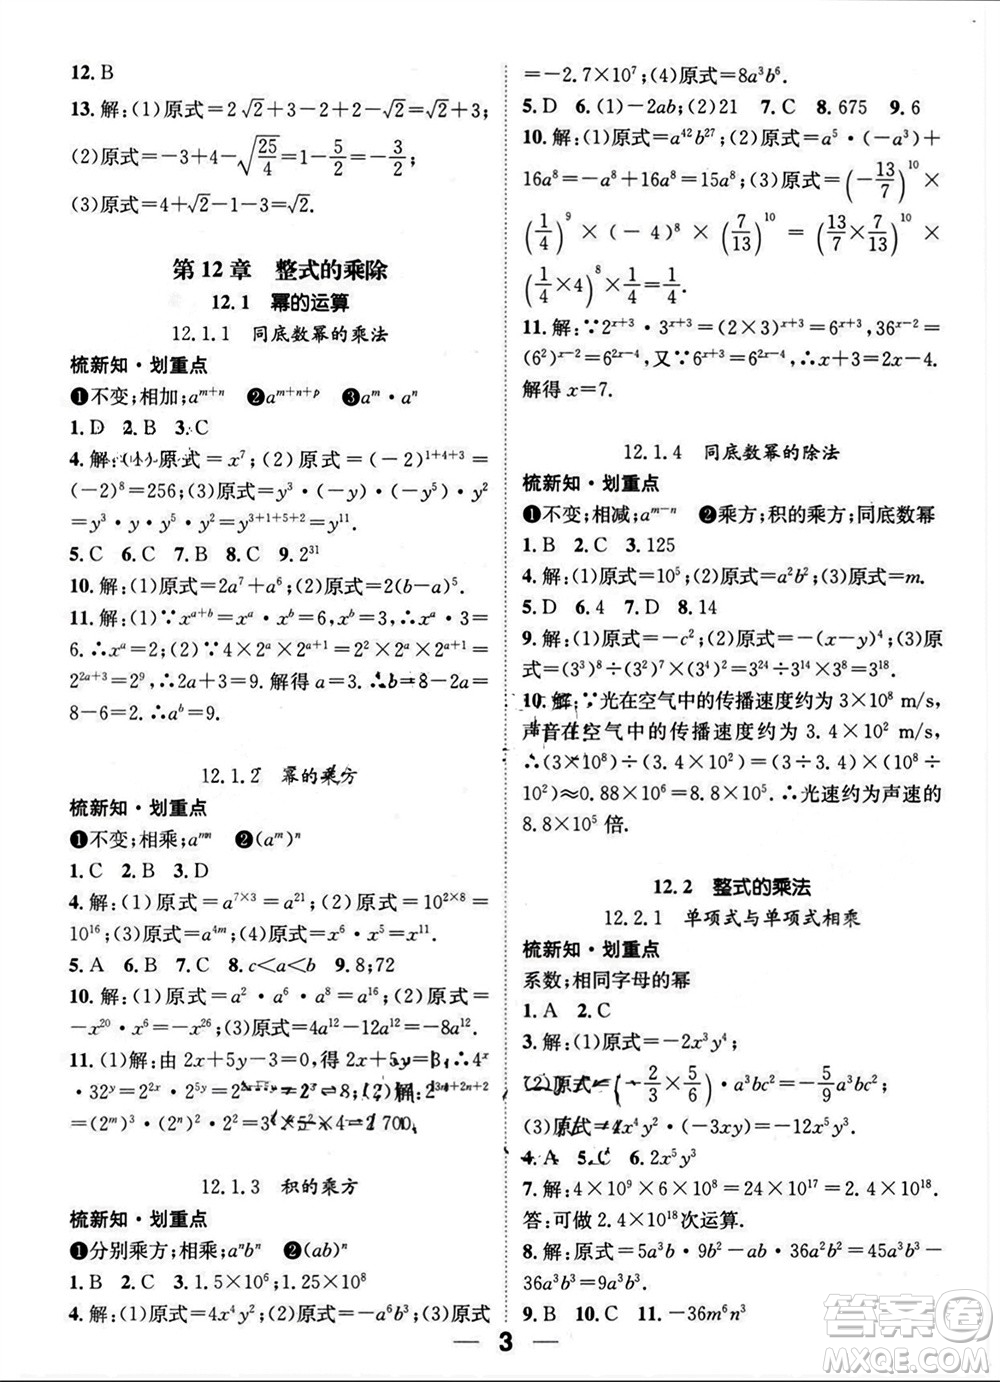 12. B
13. 解:(1)原式=2√2+3-2+2-√2=√2+3;
(2)原式=-3+4-√(25/4)=1-5/2=-3/2;
(3)原式=4+√2-1-3=√2.
第12章 整式的乘除
12.1 幂的运算
12.1.1 同底数幂的乘法
梳新知·划重点
❶不变;相加;a^{m+n} ❷a^{m+n+p} ❸a^m·a^n
1. D 2. B 3. C
4. 解:(1)原式=x^7;(2)原式=(-2)^{1+4+3}=
(-2)^8=256;(3)原式=y^3·(-y)·(-y^5)·y^2
=y^3·y·y^5·y^2=y^{3+1+5+2}=y^{11}.
5. C 6. C 7. B 8. C 9. 2^{31}
10. 解:(1)原式=2a^7+a^6;(2)原式=2(b-a)^5.
11. 解:(1)∵x^{a+b}=x^a·x^b=6,x^b=3,∴3x^a=
6.∴x^a=2;(2)∵4×2^a×2^{a+1}=2^2×2^a×2^{a+1}=
2^{2a+3}=2^9,∴2a+3=9.解得a=3.∴b=8-2a=
8-6=2.∴a^b=9.
12.1.2 幂的乘方
梳新知·划重点
❶不变;相乘;a^{mn} ❷(a^m)^n
1. C 2. B 3. D
4. 解:(1)原式=a^{7×3}=a^{21};(2)原式=10^{2×8}=
10^{16};(3)原式=a^{4m};(4)原式=x^6·x^5=x^{11}.
5. A 6. C 7. C 8. c<a<b 9. 8;72
10. 解:(1)原式=a^2·a^6·a^8=a^{16};(2)原式=
-x^{20}·x^6=-x^{26};(3)原式=4a^{12}-12a^{12}=-8a^{12}.
11. (1)解:由2x+5y-3=0,得2x+5y=3,∴4^x
·32^y=2^{2x}·2^{5y}=2^{2x+5y}=2^3=8;(2)解:2^{3m+2n+2}
=(2^m)^3·(2^n)^2·2^2=3^3×5^2×4=2 700.
12.1.3 积的乘方
梳新知·划重点
❶分别乘方;相乘;a^nb^n ❷(ab)^n
1. B 2. C 3. 1.5×10^6;1.25×10^8
4. 解:(1)原式=4x^4y^2;(2)原式=-a^6b^3;(3)原式
=-2.7×10^7;(4)原式=8a^3b^6.
5. D 6. (1)-2ab;(2)21 7. C 8. 675 9. 6
10. 解:(1)原式=a^{42}b^{27};(2)原式=a^5·(-a^3)+
16a^8=-a^8+16a^8=15a^8;(3)原式=(-13/7)^{10}×
(1/4)^9×(-4)^8×(7/13)^{10}=(13/7×7/13)^{10}×
(1/4×4)^8×1/4=1/4.
11. 解:∵2^{x+3}·3^{x+3}=(2×3)^{x+3}=6^{x+3},36^{x-2}=
(6^2)^{x-2}=6^{2x-4},又∵6^{x+3}=6^{2x-4},∴x+3=2x-4.
解得x=7.
12.1.4 同底数幂的除法
梳新知·划重点
❶不变;相减;a^{m-n} ❷乘方;积的乘方;同底数幂
1. B 2. C 3. 125
4. 解:(1)原式=10^5;(2)原式=a^2b^2;(3)原式=m.
5. D 6. 4 7. D 8. 14
9. 解:(1)原式=-c^2;(2)原式=-(x-y)^4;(3)原
式=(3^3)^8÷(3^2)^7×(3^4)^2=3^{24}÷3^{14}×3^8=3^{18}.
10. 解:∵光在空气中的传播速度约为3×10^8 m/s,
声音在空气中的传播速度约为3.4×10^2 m/s,
∴(3×10^8)÷(3.4×10^2)=(3÷3.4)×(10^8÷
10^2)≈0.88×10^6=8.8×10^5.∴光速约为声速的
8.8×10^5倍.
12.2 整式的乘法
12.2.1 单项式与单项式相乘
梳新知·划重点
系数;相同字母的幂
1. A 2. C
3. 解:(1)原式=-2x^3y^4;
(2)原式=(-2/3×5/6)·a^3bc^2=-5/9a^3bc^2;
(3)原式=4x^4y^2·(-3xy)=-12x^5y^3.
4. A 5. C 6. 2x^5y^3
7. 解:4×10^9×6×10^8=24×10^{17}=2.4×10^{18}.
答:可做2.4×10^{18}次运算.
8. 解:原式=5a^3b·9b^2-ab·36a^2b^2=45a^3b^3-
36a^3b^3=9a^3b^3.
9. B 10. C 11. -36m^6n^3
3
答案卷
MXQE.COM